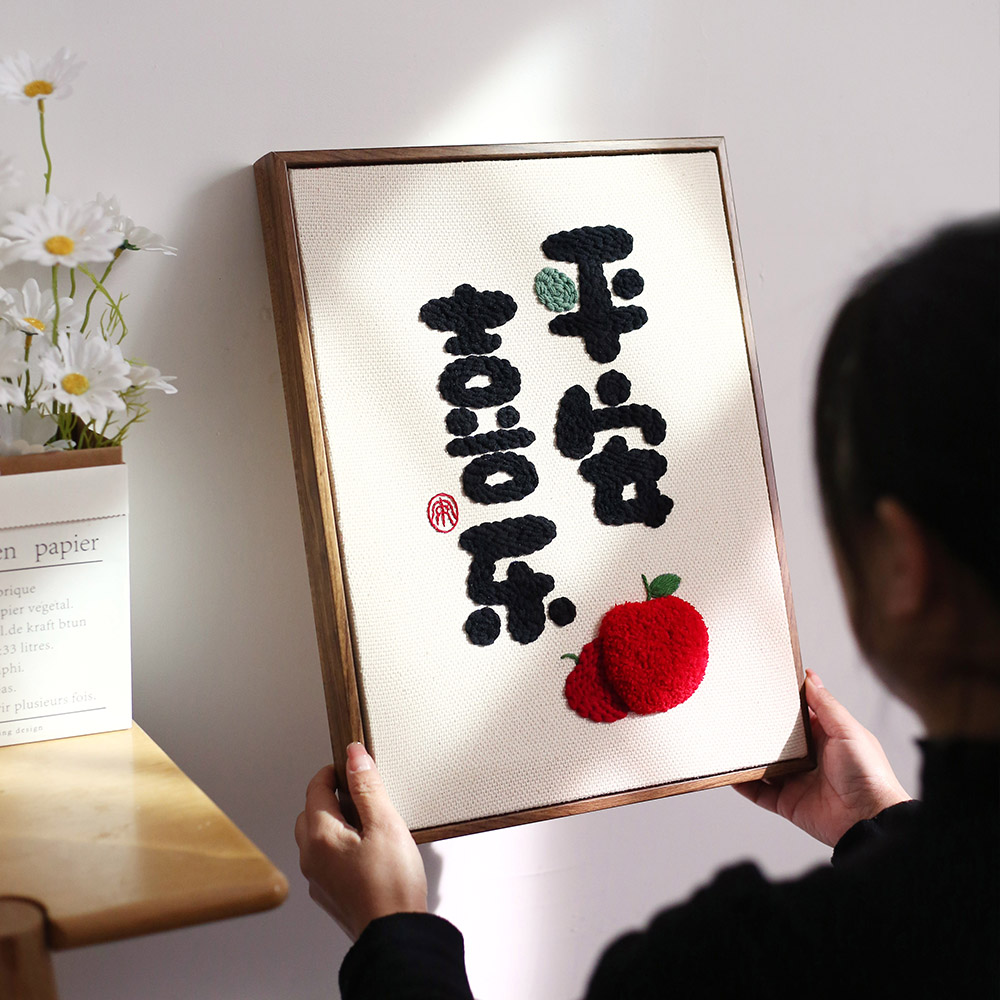 平安
喜乐
en papier
orique
pier vegetal.
l.de kraft btun
:33 litres.
phi.
as.
rir plusieurs fois.
ing design